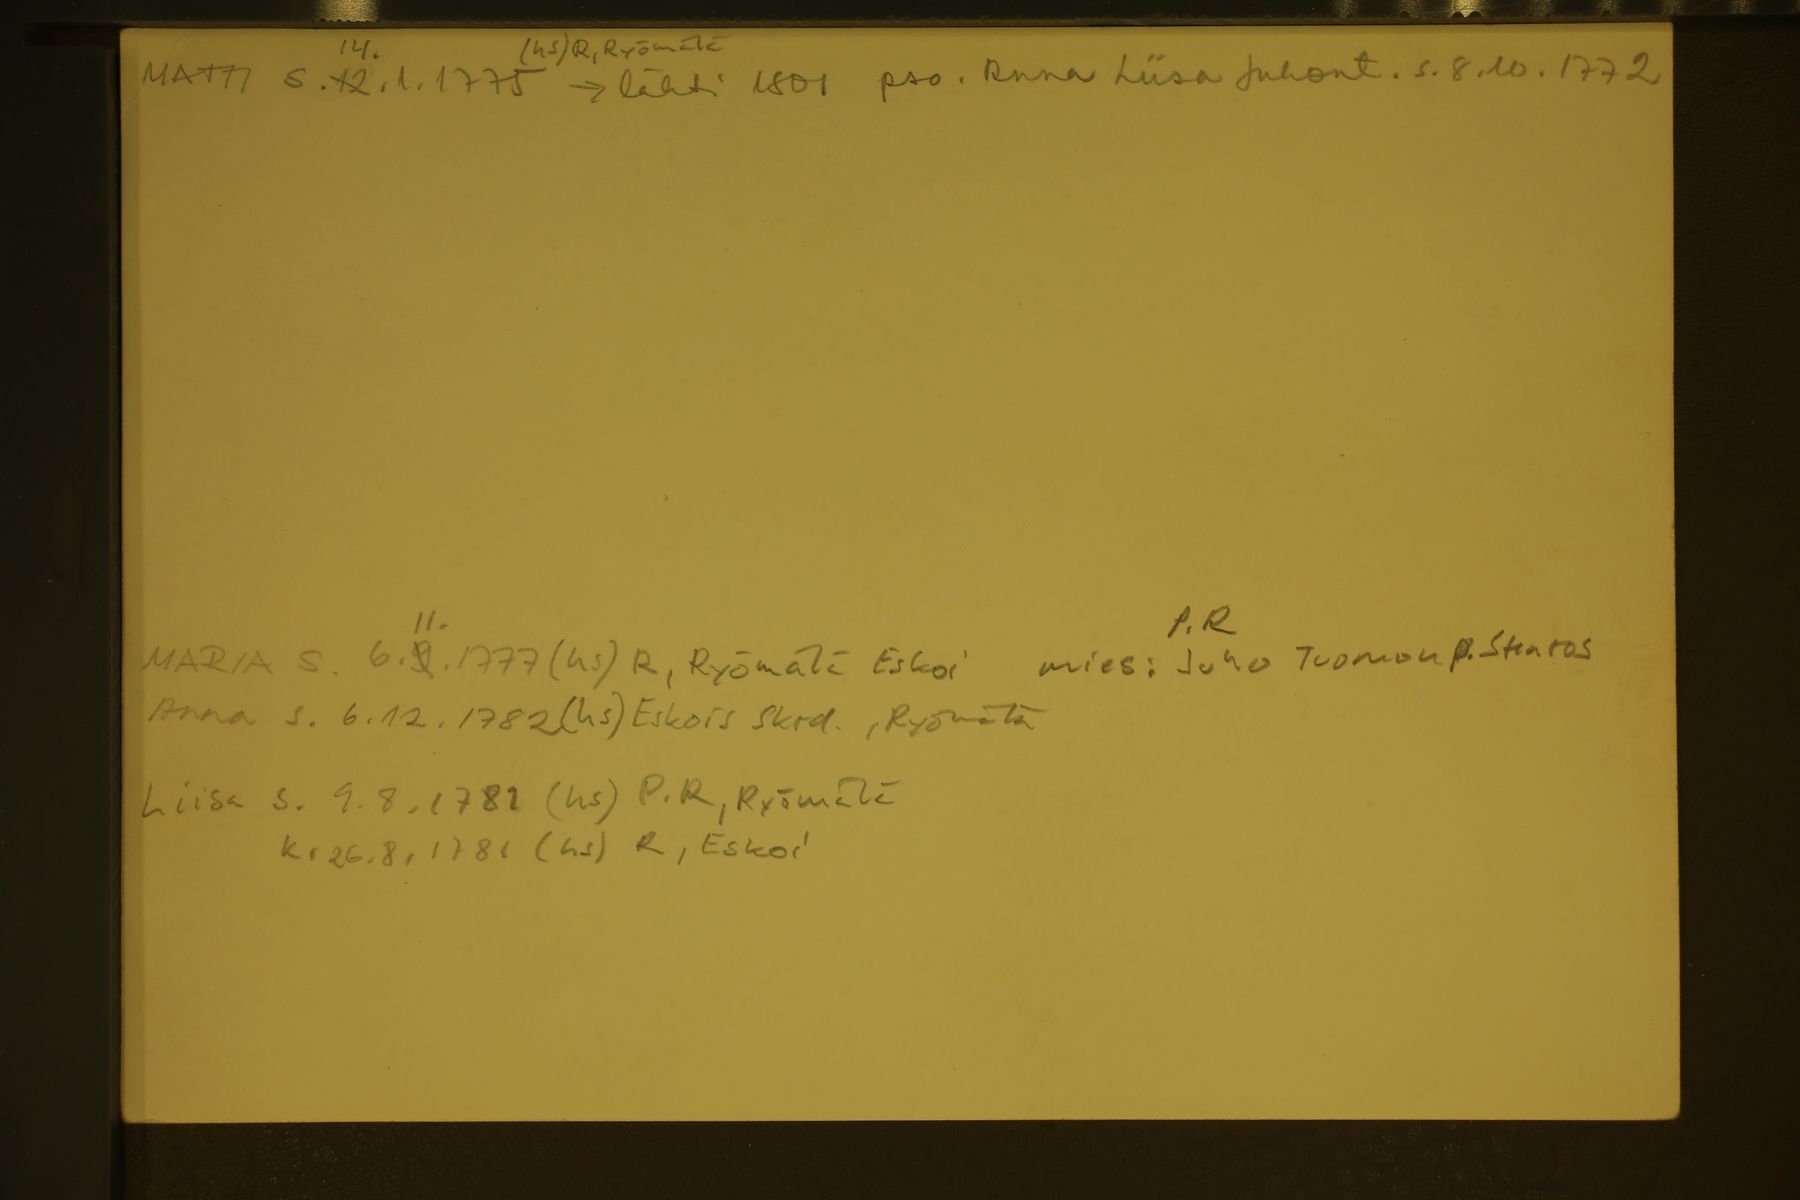 14. (hs) R, Ryömälä
MATTI S. 12.1.1775 → lähti 1801 pso. Anna Liisa Juhont. s. 8.10.1772
11. P.R
MARIA S. 6.9.1777 (hs) R, Ryömälä Eskoi mies: Juho Tuomon p. Stenroos
Anna s. 6.12.1782 (hs) Eskois Skrd., Ryömälä
Liisa s. 9.8.1781 (hs) P.R, Ryömälä
k. 26.8.1781 (hs) R, Eskoi